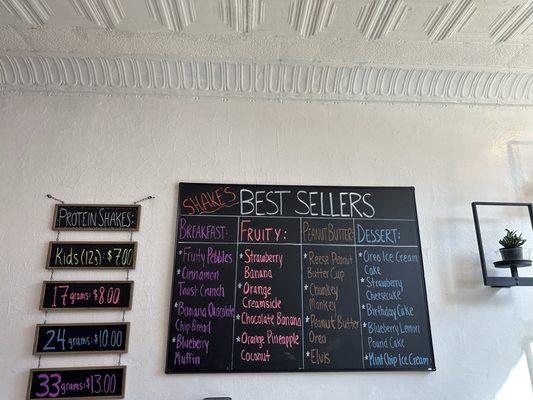 PROTEIN SHAKES:
Kids (12g) $7.00
17 grams: $8.00
24 grams: $10.00
33 grams: $13.00
SHAKES BEST SELLERS
BREAKFAST:
* Fruity Pebbles
* Cinnamon
Toast Crunch
* Banana Chocolate
Chip Bread
* Blueberry
Muffin
FRUITY:
* Strawberry
Banana
* Orange
Creamsicle
* Chocolate Banana
* Orange Pineapple
Coconut
PEANUT BUTTER:
* Reese Peanut
Butter Cup
* Chunky
Monkey
* Peanut Butter
Oreo
* Elvis
DESSERT:
* Oreo Ice Cream
Cake
* Strawberry
Cheesecake
* Birthday Cake
* Blueberry Lemon
Pound Cake
* Mint Chip Ice Cream